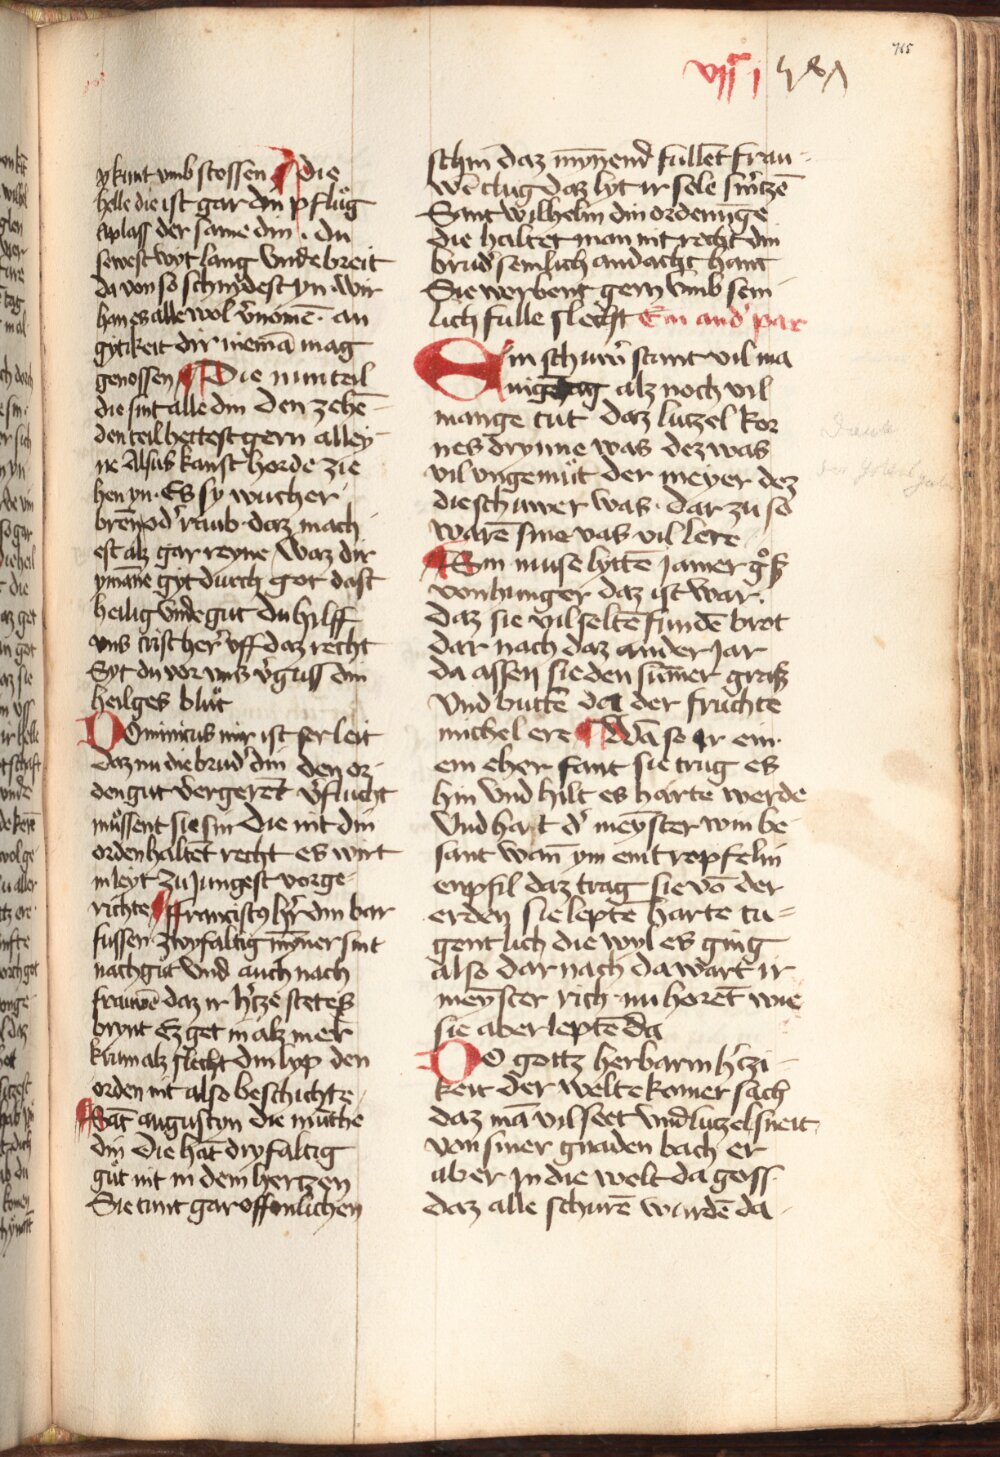 765
vɉɉ j
y kunt vmb stossen ¶ die
helle die ist gar din pflůg
Aplass der same din . du
sewest wyt lang vnde breit
da von so schnydest yn . wir
han es alle wol v'nomē . an
gytikeit dir niemā mag
genossen ¶ Die nun teil
die sint alle din den zehē-
den teil hettest gern alley-
ne Alsus kanst horde zie
hen yn . Es sy wucher
brēn od' raub . daz mach
est alz gar reyne waz dir
ymāne gyt durch got dast
heilig vnde gut du hilff
vns crist her' vff daz recht
Syt du vor vns v'guss din
heilges blůt
Dominicus mir ist ser leit
daz nu die brud' din den or-
den gut v'ergerēt v'flucht
můssent sie sin die nit din
orden haltēt recht es wirt
in leyt zu jungest vorge-
richte ¶ ffranciscꝰ h'r din bar
fussen zwyfaltig mỹner sint
nach gut vnd auch nach
frauwē daz ir h'tze stetes
brynt Ez get in alz mer
krum alz slecht din lyp den
orden nit also beschichte
¶ Sāt augustyn die mūche
din die hāt dryfaltig
gůt nit in dem hertzen
Sie tunt gar offenlichen
schin daz mynend fullēt frau-
wē clug daz lyt ir sele sm'tzē
Sant wilhelm din ordenūge
die haltet man nit recht din
brud' semlich andacht hant
Sie werbent gern vmb sem-
lich fulle slecht Ein and' par
Ein schuw'r stunt vil ma
nigē tag alz noch vil
mange tut daz lutzel kor
nes drynne was dez was
vil vngemůt der meyer dez
die schuwer was . dar zu so
warē sine vas vil lere
¶ Sin muse lyttē jamer gͦsz
von hunger daz ist war .
daz sie vil seltē fundē brot
dar nach daz ander jar
da assen sie den sūmer grasz
vnd buttē da der fruchte
michel ere ¶ Wā so ir ein
ein eher fant sie trug es
hin vnd hilt es harte werde
vnd hart d' meyster win be-
sant wan ym ein tropfelin
enpfil daz trag sie vō der
erden sie lepte harte tu=
gentlich die wyl es ging
also dar nach da wart ir
meyster rich . nu horēt wie
sie aber leptē da
Do gottz herbarmh'tzi-
keit der welte komer sach
daz mā vil seet vnd lutzel sneit
von siner gnaden bach er
aber jn die welt da goss
daz alle schurē wurdē da